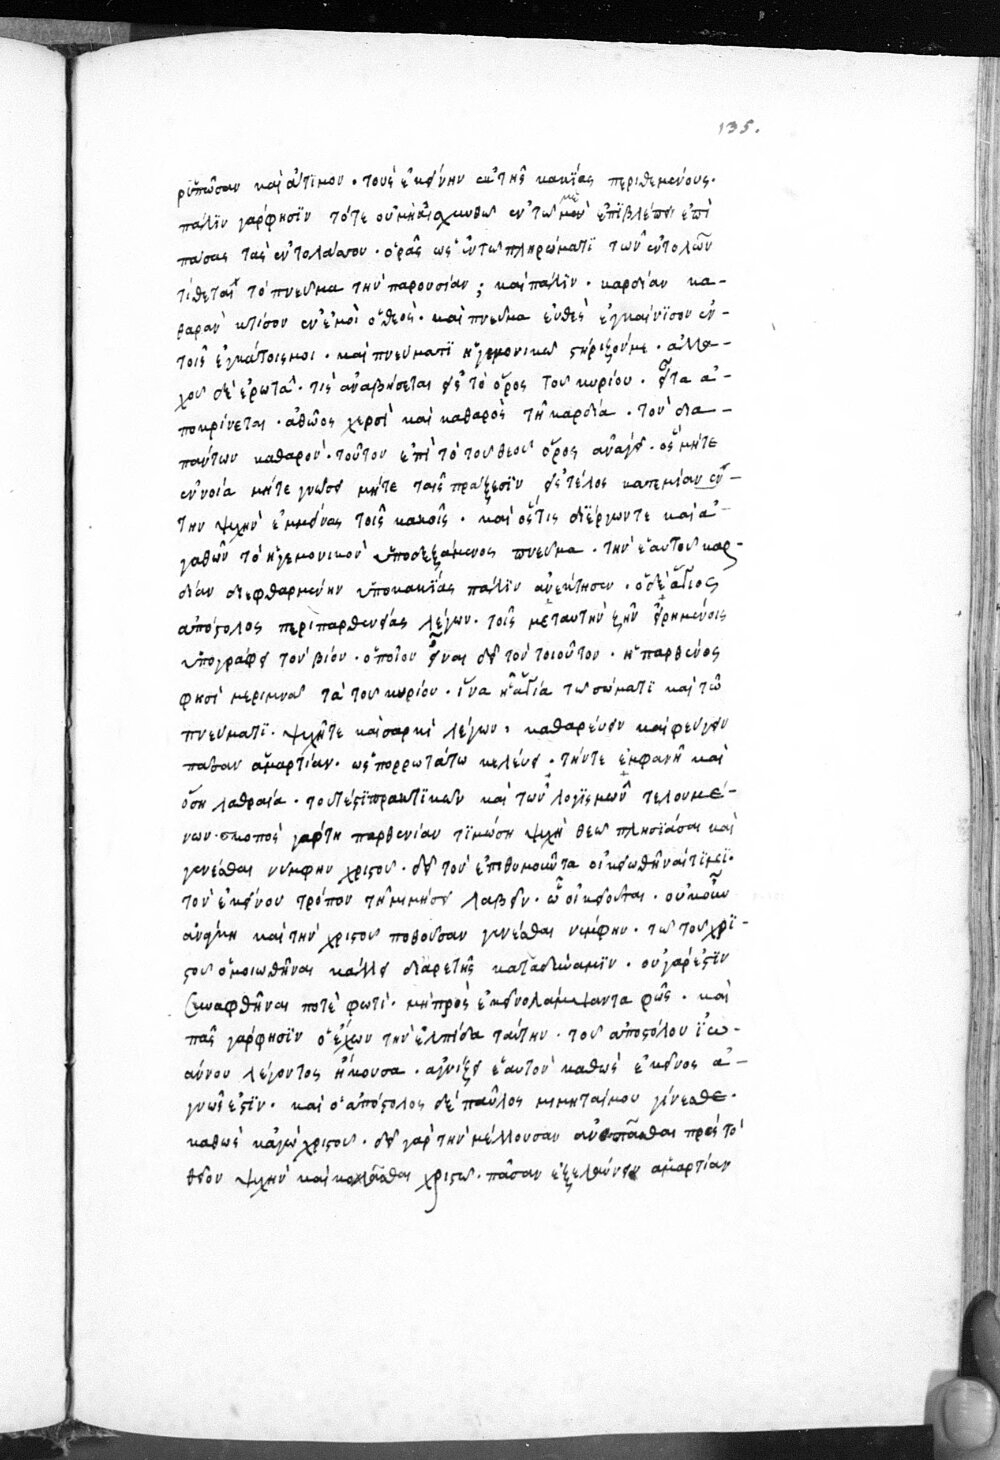 135.
ρύπωσαν καὶ ἄτιμον · τοὺς ἐκείνην ἐκ τῆς κακίας περιθεμένους ·
πάλιν γάρ φησὶν τότε οὐ μὴ αἰσχυνθῶ ἐν τῶ με ἐπιβλέπειν ἐπὶ
πάσας τὰς ἐντολάς σου · ὁρᾶς ὡς ἐν τῶ πληρώματι τῶν ἐντολῶν
τίθεται τὸ πνεῦμα τὴν παρουσίαν ; καὶ πάλιν · καρδίαν κα-
θαρὰν κτίσον ἐν ἐμοὶ ὁ θεός · καὶ πνεῦμα εὐθὲς ἐγκαίνισον ἐν
τοῖς ἐγκάτοις μου · καὶ πνεύματι ἡγεμονικῶ στήριξόν με · ἀλλα-
χοῦ δὲ ἐρωτᾶ · τίς ἀναβήσεται εἰς τὸ ὄρος τοῦ κυρίου · εἶτα ἀ-
ποκρίνεται · ἀθῶος χερσὶ καὶ καθαρὸς τῆ καρδία · τὸν δια-
πάντων καθαρόν · τοῦτον ἐπὶ τὸ τοῦ θεοῦ ὄρος ἀνάγει · ὃς μήτε
ἐννοία μήτε γνώσει μήτε ταῖς πράξεσιν εἰς τέλος κατεμίανεν
τὴν ψυχὴν ἐμμείνας τοῖς κακοῖς · καὶ ὅστις δι' ἔργων τε καὶ ἀ-
γαθῶν τὸ ἡγεμονικὸν ὑποδεξάμενος πνεῦμα · τὴν ἑαυτοῦ καρ
δίαν διεφθαρμένην ὑπὸ κακίας πάλιν ἀνεκτήσεν · ὁ δὲ ἅγιος
ἀπόστολος περὶ παρθενίας λέγων · τοῖς μετ' αὐτὴν ζῆν εἰρημένοις
ὑπογράφει τὸν βίον · ὁποῖον εἶναι δεῖ τὸν τοιοῦτον · ἡ παρθένος
φησὶ μεριμνᾶ τὰ τοῦ κυρίου · ἵνα ἦ ἁγία τῶ σώματι καὶ τῶ
πνεύματι · ψυχῆ τε καὶ σαρκὶ λέγων, καθαρεύειν καὶ φεύγειν
πᾶσαν ἁμαρτίαν · ὡς πορρωτάτω κελεύει · τήν τε ἐμφανῆ καὶ
ὅση λαθραία · τουτέστι πρακτικῶν καὶ τῶν λογισμῶν τελουμέ-
νων · σκοπὸς γὰρ τῆ παρθενίαν τιμώση ψυχῆ θεῶ πλησιάσαι καὶ
γενέσθαι νύμφην χριστοῦ · δεῖ τὸν ἐπιθυμοῦντα οἰκειωθῆναί τινι ·
τὸν ἐκείνου τρόπον τῆ μιμήσει λαβεῖν · ᾧ οἰκειοῦται · οὐκοῦν
ἀνάγκη καὶ τὴν χριστοῦ ποθοῦσαν γενέσθαι νύμφην · τῶ τοῦ χρι-
στοῦ ὁμοιωθῆναι κάλλει δι' ἀρετῆς κατὰ δύναμιν · οὐ γάρ ἐστιν
συναφθῆναί ποτε φωτί · μὴ πρὸς ἐκεῖνο λάμψαντα φῶς · καὶ
πᾶς γάρ φησιν ὁ ἔχων τὴν ἐλπίδα ταύτην · τοῦ ἀποστόλου ἰω-
άννου λέγοντος ἤκουσα · ἁγνίζει ἑαυτὸν καθὼς ἐκεῖνος ἁ-
γνός ἐστιν · καὶ ὁ ἀπόστολος δὲ παῦλος μιμηταί μου γίνεσθε ·
καθὼς κἀγὼ χριστοῦ · δεῖ γὰρ τὴν μέλλουσαν ἀνασπᾶσθαι πρὸς τὸ
θεῖον ψυχὴν καὶ κολλᾶσθαι χριστῶ · πᾶσαν ἐξελαύνειν ἁμαρτίαν